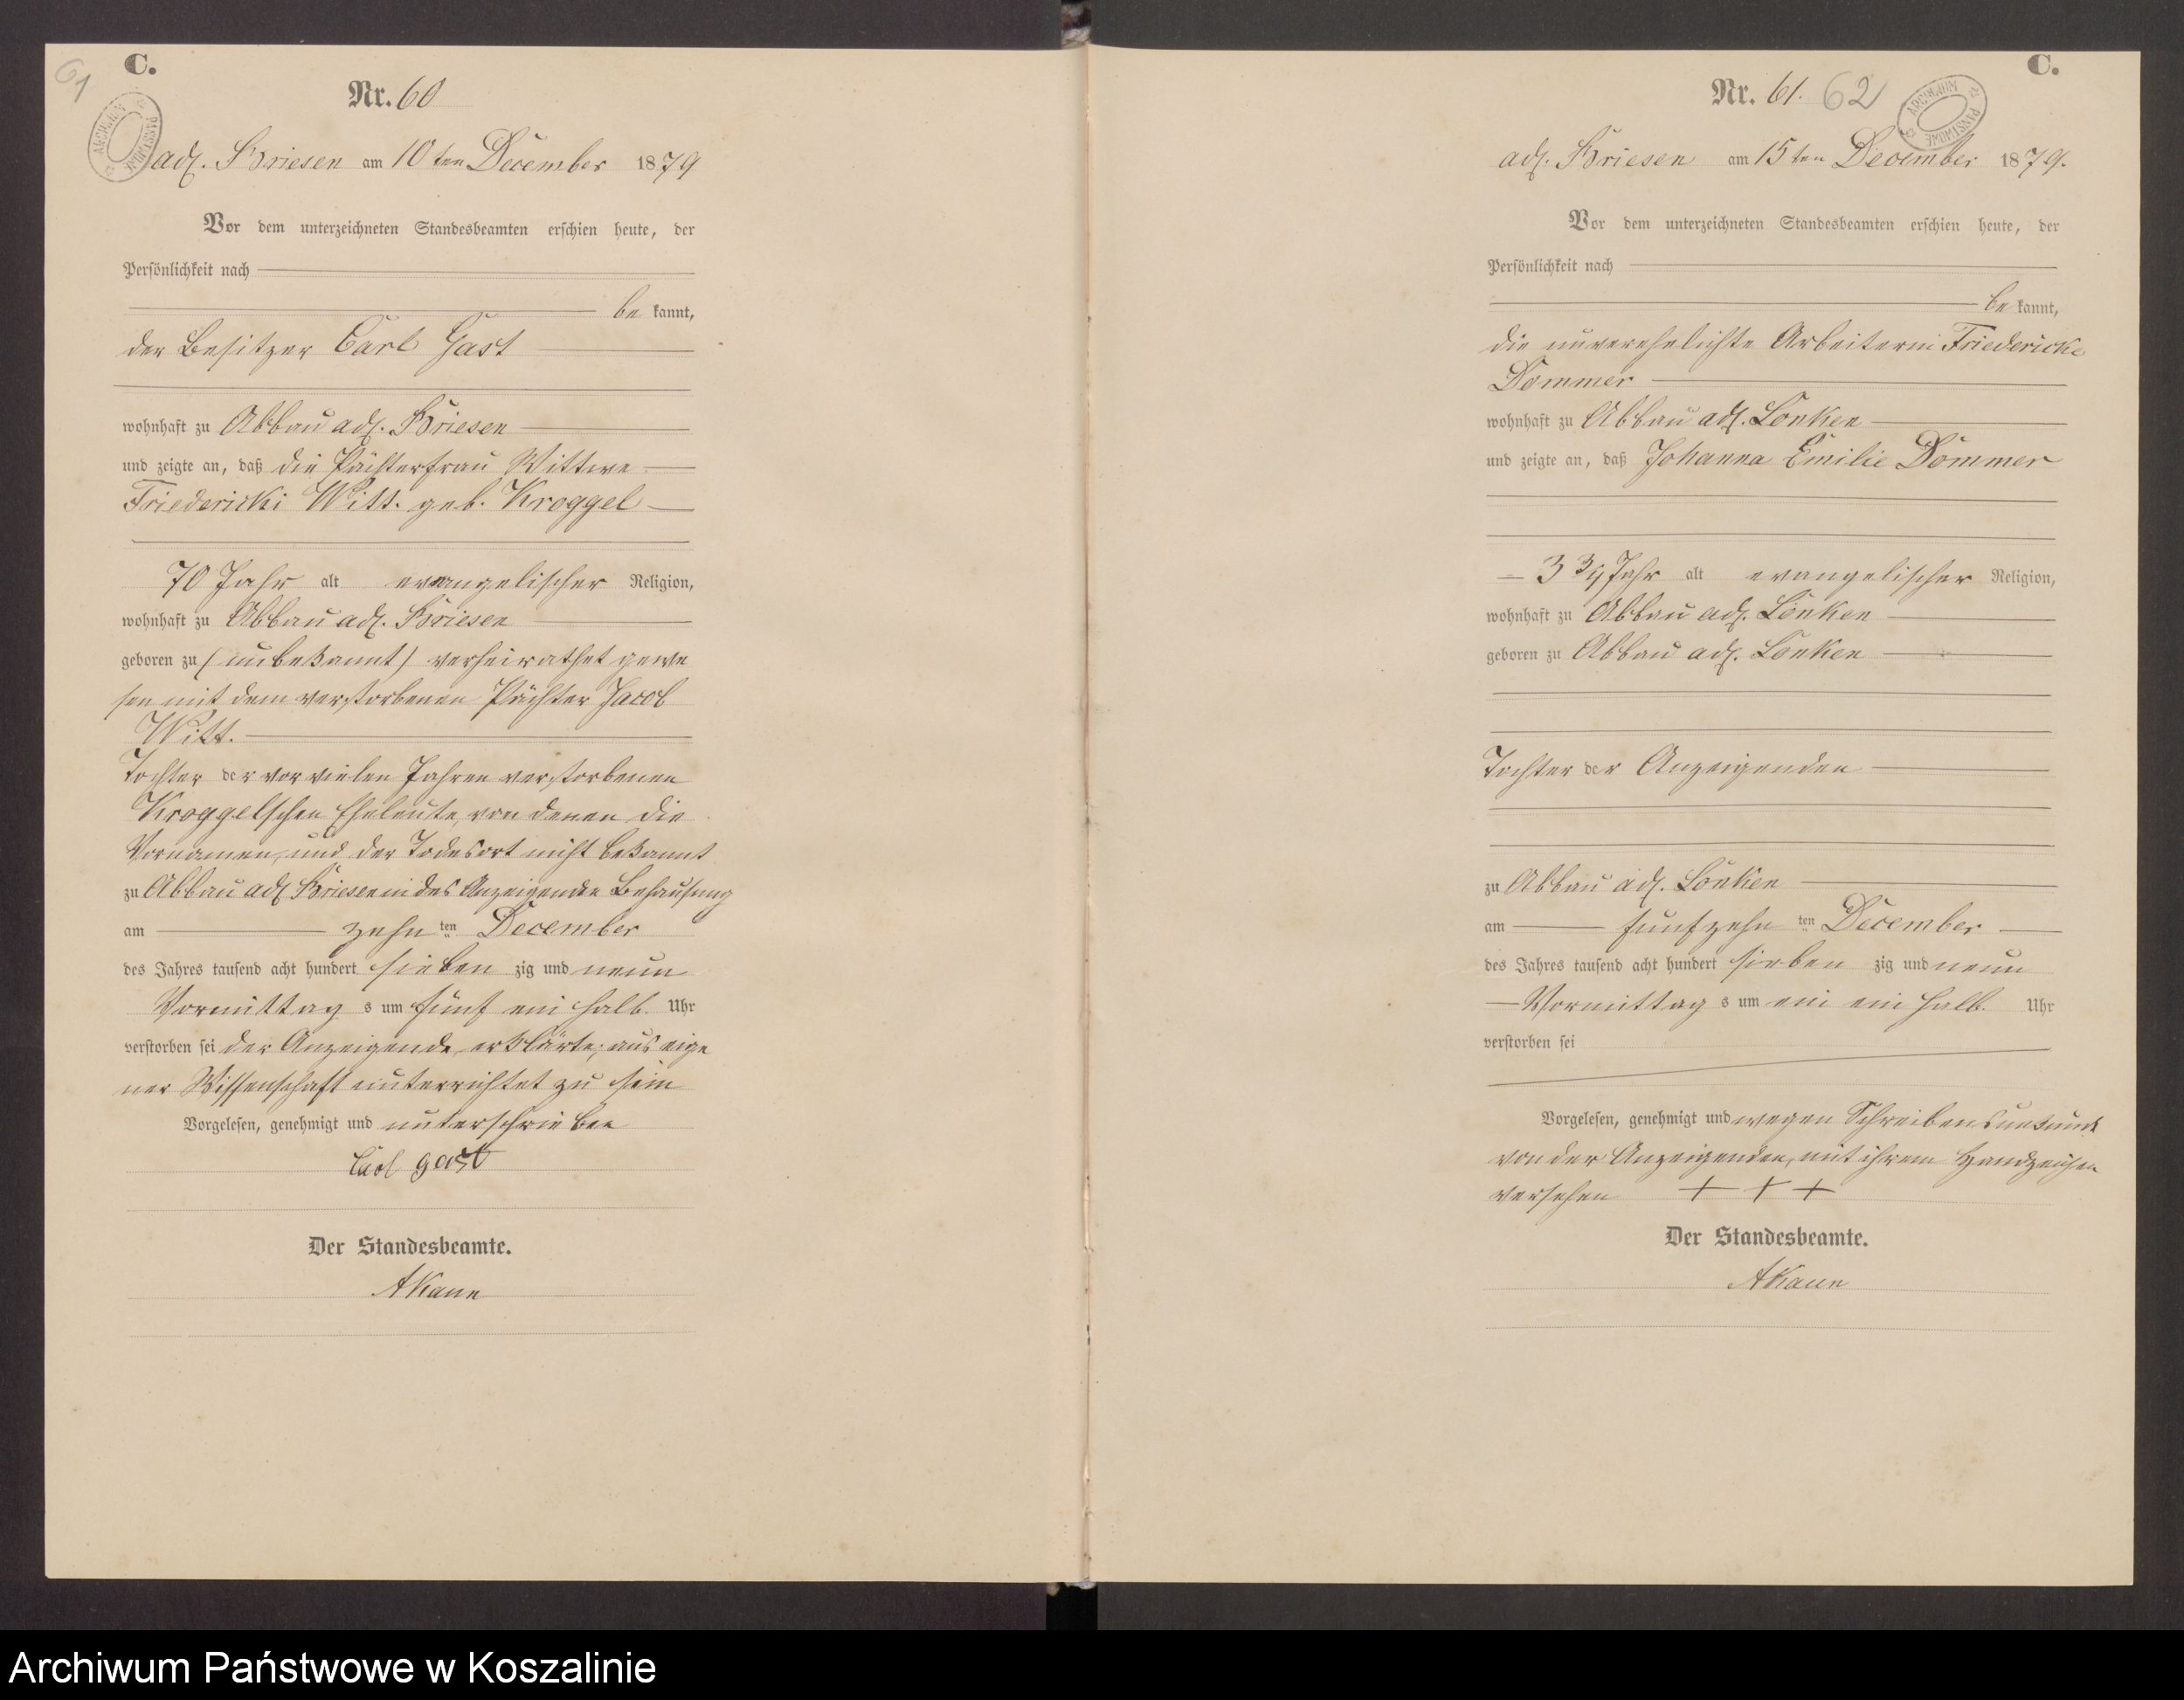 61
C.
Nr. 60
ARCHIWUM PAŃSTWOWE
adl. Briesen am 10ten December 1879
Vor dem unterzeichneten Standesbeamten erschien heute, der
Persönlichkeit nach
be kannt,
der Besitzer Carl Gast
wohnhaft zu Abbau adl. Briesen
und zeigte an, daß die Pächterfrau Wittwe
Friedericki Witt. geb. Kroggel
70 Jahr alt evangelischer Religion,
wohnhaft zu Abbau adl. Briesen
geboren zu (unbekannt) verheirathet gewe
sen mit dem verstorbenen Pächter Jacob
Witt.
Tochter der vor vielen Jahren verstorbenen
Kroggelschen Eheleute, von denen die
Vornamen, und der Todesort nicht bekannt
zu Abbau adl. Briesen in des Anzeigenden Behausung
am zehn ten December
des Jahres tausend acht hundert sieben zig und neun
Vormittag s um fünf ein halb. Uhr
verstorben sei der Anzeigende, erklärte; aus eige
ner Wissenschaft unterrichtet zu sein
Vorgelesen, genehmigt und unterschrieben
Carl gast
Der Standesbeamte.
AKann
C.
Nr. 61. 62
ARCHIWUM PAŃSTWOWE
adl. Briesen am 15ten December 1879.
Vor dem unterzeichneten Standesbeamten erschien heute, der
Persönlichkeit nach
be kannt,
die unverehelichte Arbeiterin Friedericke
Dommer
wohnhaft zu Abbau adl. Lonken
und zeigte an, daß Johanna Emilie Dommer
3 3/4 Jahr alt evangelischer Religion,
wohnhaft zu Abbau adl. Lonken
geboren zu Abbau adl. Lonken
Tochter der Anzeigenden
zu Abbau adl. Lonken
am fünfzehn ten December
des Jahres tausend acht hundert sieben zig und neun
Vormittag s um ein ein halb. Uhr
verstorben sei
Vorgelesen, genehmigt und wegen Schreibensunkunde
von der Anzeigenden, mit ihrem Handzeichen
versehen + + +
Der Standesbeamte.
AKann
Archiwum Państwowe w Koszalinie